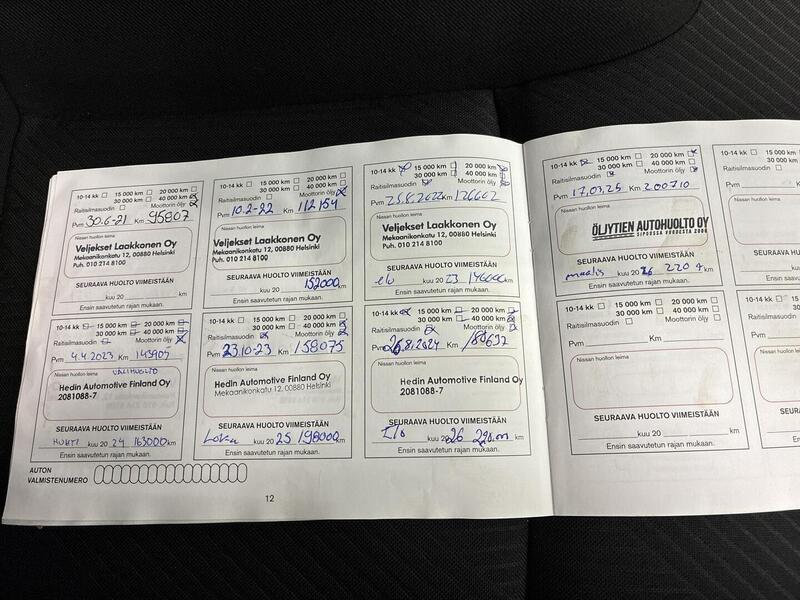 10-14 kk 15 000 km 20 000 km
30 000 km 40 000 km
Raitisilmasuodin Moottorin öljy
Pvm 30.6-21 Km 95807
Nissan huollon leima
Veljekset Laakkonen Oy
Mekaanikonkatu 12, 00880 Helsinki
Puh. 010 214 8100
SEURAAVA HUOLTO VIIMEISTÄÄN
kuu 20 km
Ensin saavutetun rajan mukaan.
10-14 kk 15 000 km 20 000 km
30 000 km 40 000 km
Raitisilmasuodin Moottorin öljy
Pvm 10.2-22 Km 112154
Nissan huollon leima
Veljekset Laakkonen Oy
Mekaanikonkatu 12, 00880 Helsinki
Puh. 010 214 8100
SEURAAVA HUOLTO VIIMEISTÄÄN
kuu 20 152000 km
Ensin saavutetun rajan mukaan.
10-14 kk 15 000 km 20 000 km
30 000 km 40 000 km
Raitisilmasuodin Moottorin öljy
Pvm 25.8.2022 Km 126602
Nissan huollon leima
Veljekset Laakkonen Oy
Mekaanikonkatu 12, 00880 Helsinki
Puh. 010 214 8100
SEURAAVA HUOLTO VIIMEISTÄÄN
elo kuu 20 23 km
Ensin saavutetun rajan mukaan.
10-14 kk 15 000 km 20 000 km
30 000 km 40 000 km
Raitisilmasuodin Moottorin öljy
Pvm 4.4.2023 Km 143907
VÄLIHUOLTO
Nissan huollon leima
Hedin Automotive Finland Oy
2081088-7
SEURAAVA HUOLTO VIIMEISTÄÄN
HUHTI kuu 20 24 163000 km
Ensin saavutetun rajan mukaan.
10-14 kk 15 000 km 20 000 km
30 000 km 40 000 km
Raitisilmasuodin Moottorin öljy
Pvm 23.10-23 Km 158075
Nissan huollon leima
Hedin Automotive Finland Oy
Mekaanikonkatu 12, 00880 Helsinki
SEURAAVA HUOLTO VIIMEISTÄÄN
Loka kuu 20 25 198000 km
Ensin saavutetun rajan mukaan.
10-14 kk 15 000 km 20 000 km
30 000 km 40 000 km
Raitisilmasuodin Moottorin öljy
Pvm 26.8.2024 Km 188637
Nissan huollon leima
Hedin Automotive Finland Oy
2081088-7
SEURAAVA HUOLTO VIIMEISTÄÄN
kuu 2026
Ensin saavutetun rajan mukaan.
AUTON
VALMISTENUMERO
12
10-14 kk 15 000 km 20 000 km
30 000 km 40 000 km
Raitisilmasuodin Moottorin öljy
Pvm 17.03.25 Km 200710
Nissan huollon leima
ÖLJYTIEN AUTOHUOLTO OY
SIPOOSSA VUODESTA 2006
SEURAAVA HUOLTO VIIMEISTÄÄN
maalis kuu 20 26 220 km
Ensin saavutetun rajan mukaan.
10-14 kk 15 000 km 20 000 km
30 000 km 40 000 km
Raitisilmasuodin Moottorin öljy
Pvm Km
Nissan huollon leima
SEURAAVA HUOLTO VIIMEISTÄÄN
kuu 20 km
Ensin saavutetun rajan mukaan.
10-14 kk
Raitisilmasuodin
Pvm
Nissan huollon leima
SEURAAVA
Ensin
10-14 kk
Raitisilma
Pvm
Nissan huollon